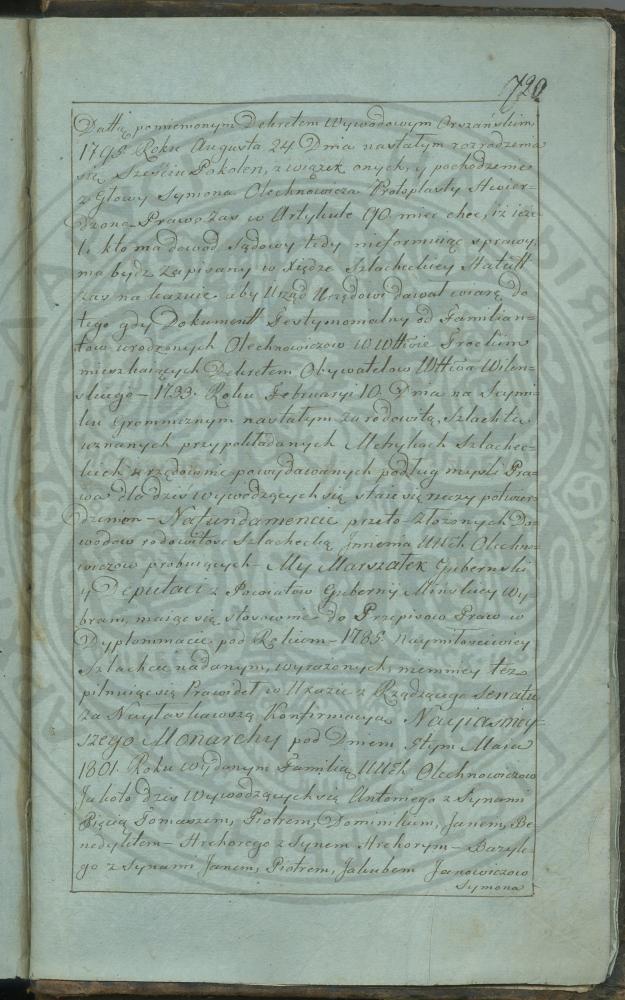 720
Dattą pomienionym Dekretem Wywodowym Orszańskim
1795 Roku Augusta 24 Dnia nastałym rozradzenia
się Sześciu Pokoleń, związek onych, y pochodzenie
z głowy Symona Olechnowicza Protoplasty stwier-
dzono. Prawo zas w Artykule 90. miec chce, iż ieże-
li kto ma dowod sądowy tedy nieformuiąc sprawy,
ma bydz zapisany w Xiędze Szlacheckiey Statutt
zas nakazuie, aby Urząd Urzędowi dawał wiarę, do
tego gdy Dokumentt Testymonialny od Familian-
tow urodzonych Olechnowiczow w Wttwie Trockim
mieszkaiących Dekretem Obywatelow Wttwa Wilen-
skiego - 1733. Roku Februaryi 10. Dnia na Seymi-
ku Gromnicznym nastałym za rodowitą Szlachtę
uznanych przypokładanych Metrykach Szlachec-
kich urzędownie powydawanych podług mysli Pra-
wa dla dzis wywodzących się staie się rzeczy potwier-
dzeniem - Nafundamencie przeto złożonych Do-
wodow rodowitosc Szlachecką Imienia UUch Olechno-
wiczow probuiących - My Marszałek Gubernski
y Deputaci z Powiatow Gubernij Minskiey wy-
brani, maiąc się stosownie do Przepisow Praw w
Dyplommacie pod Rokiem - 1785. Naymiłosciwiey
Szlachcie nadanym, wyrażonych, niemniey też
pilnuiąc się Prawideł w Ukazie z Rządzącego Senatu
za Naylaskawszą Konfirmacyą Nayiasniey-
szego Monarchy pod Dniem Maia
1801. Roku wydanym Familią UUch Olechnowiczow
Jakoto dzis Wywodzących się Antoniego z Synami
Pięcią Tomaszem, Piotrem, Dominikiem, Janem, Be-
nedyktem - Archorego z Synem Archorym - Bazyle-
go z Synami Janem, Piotrem, Jakubem Janowiczow
Symona